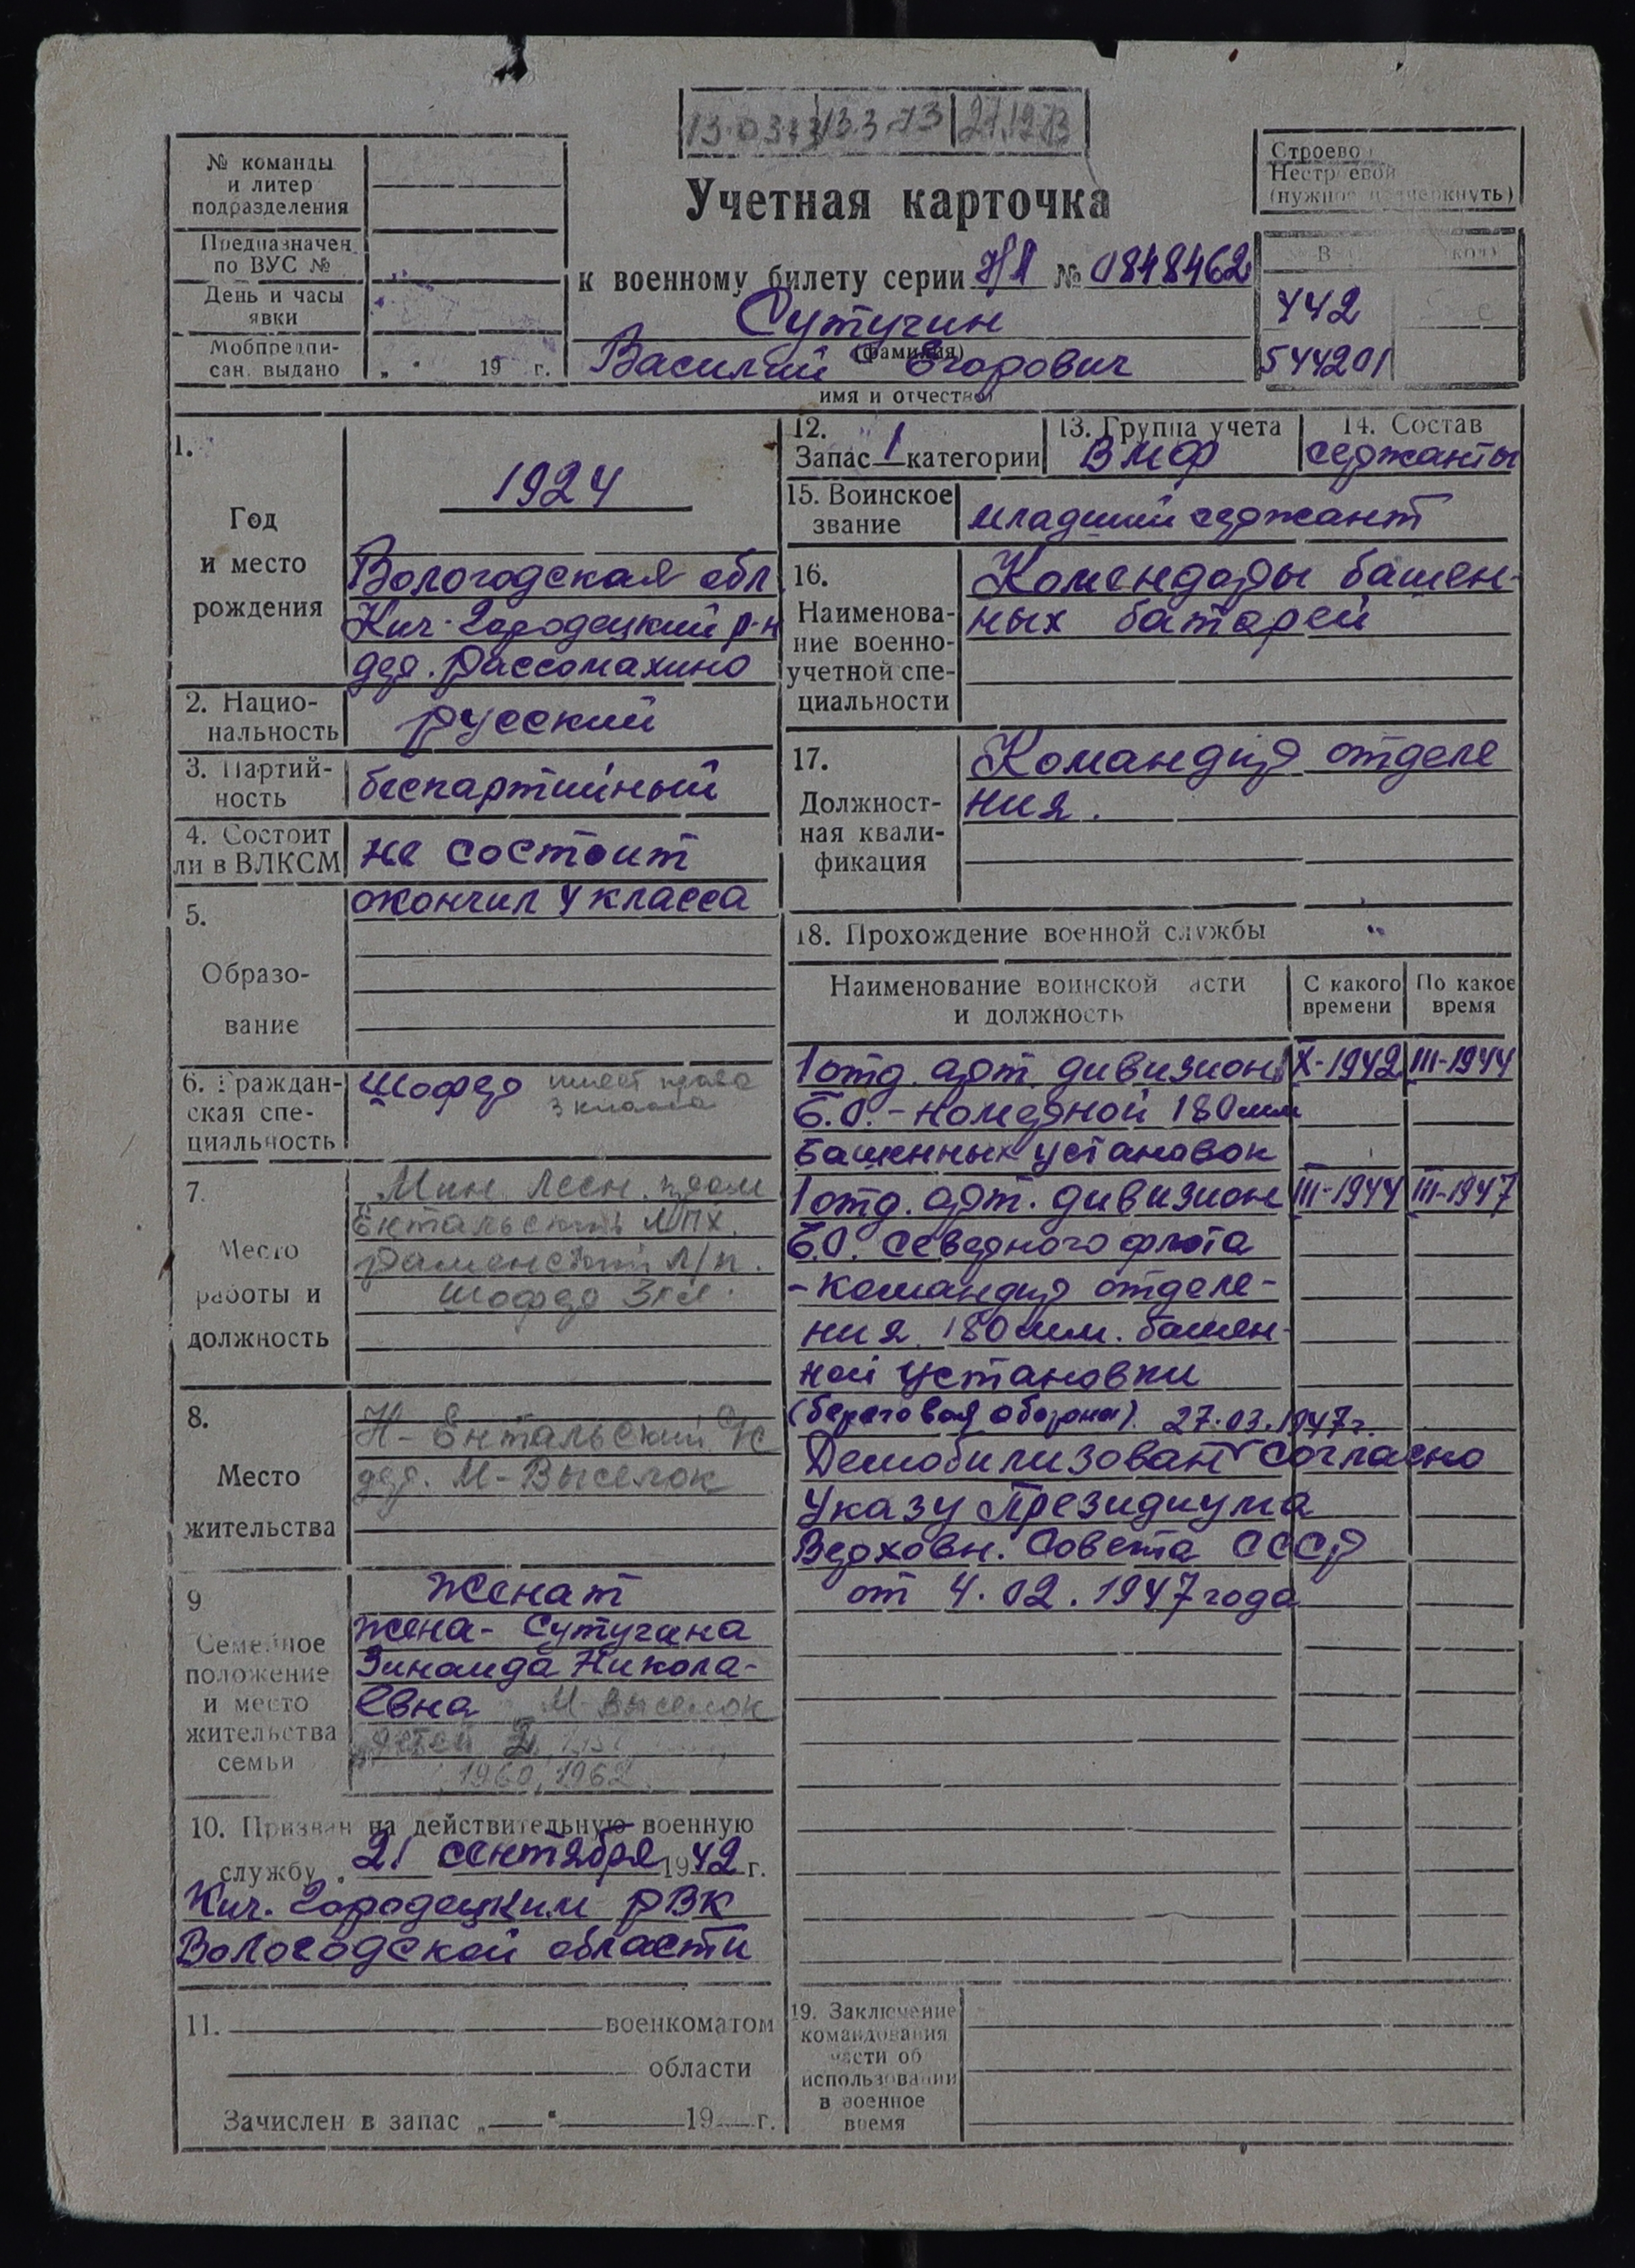 13.03.73 13.3.73 27.12.73
№ команды
и литер
подразделения
Предназначен
по ВУС №
День и часы
явки
Мобпредпи-
сан. выдано „ " 19 г.
Учетная карточка
к военному билету серии НЛ № 0848462
Сутугин
(фамилия)
Василий Егорович
имя и отчество
Строевой
Нестроевой
(нужное подчеркнуть)
442
544201
1.
Год
и место
рождения
1924
Вологодская обл
Кич-Городецкий р-н
дер. Рассомахино
2. Нацио-
нальность
русский
3. Партий-
ность
беспартийный
4. Состоит
ли в ВЛКСМ
не состоит
5.
Образо-
вание
окончил 4 класса
6. Граждан-
ская спе-
циальность
Шофер имеет права
3 класса
7.
Место
работы и
должность
Мин. Лесн. пром
Ентальский ЛПХ.
Раменский Л/п.
Шофер 3 кл.
8.
Место
жительства
Н-Ентальский с/с
дер. М-Выселок
9
Семейное
положение
и место
жительства
семьи
Женат
жена - Сутугина
Зинаида Никола-
евна М-Выселок
детей 2
1960, 1962
10. Призван на действительную военную
службу „ 21 сентября 1942 г.
Кич. Городецким РВК
Вологодской области
11. военкоматом
области
Зачислен в запас „ " 19 г.
12.
Запас 1 категории
13. Группа учета
ВМФ
14. Состав
сержанты
15. Воинское
звание
младший сержант
16.
Наименова-
ние военно-
учетной спе-
циальности
Комендоры башен-
ных батарей
17.
Должност-
ная квали-
фикация
Командир отделе
ния.
18. Прохождение военной службы
Наименование воинской части
и должность
С какого
времени
По какое
время
1 отд. арт. дивизион X-1942 III-1944
Б.О. - номерной 180мм
башенных установок
1 отд. арт. дивизион III-1944 III-1947
Б.О. Северного флота
- командир отделе-
ния 180мм. башен-
ной установки
(береговая оборона). 27.03.1947г.
Демобилизован согласно
Указу Президиума
Верховн. Совета СССР
от 4.02.1947 года
19. Заключение
командования
части об
использовании
в военное
время